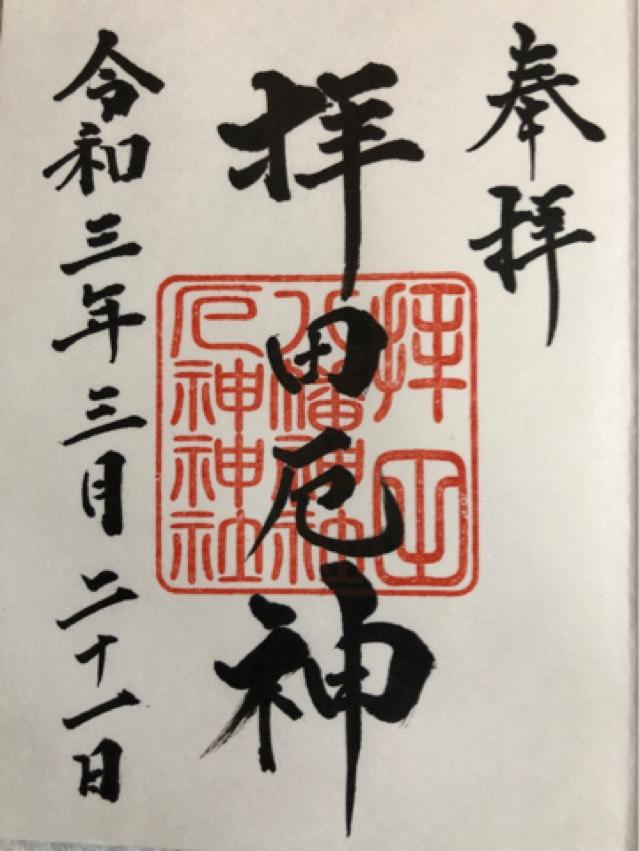 奉拝
拝田厄神
拝田
八幡神社
厄神神社
令和三年三月二十一日